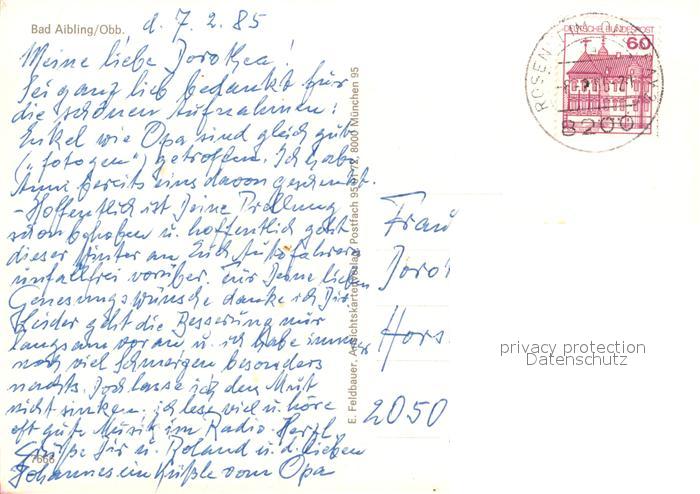 Bad Aibling/Obb.
d. 7.2.85
Meine liebe Dorothea!
Sei ganz lieb bedankt für
die schönen Aufnahmen:
Enkel wie Opa sind gleich gut
("fotogen") getroffen. Ich habe
Anni bereits eins davon geschenkt.
- Hoffentlich ist Deine Prellung
schon behoben u. hoffentlich geht
dieser Winter an Euch Autofahrern
unfallfrei vorüber. Für Deine lieben
Genesungswünsche danke ich Dir
Leider geht die Besserung nur
langsam voran u. ich habe immer
noch viel Schmerzen besonders
nachts. Doch lasse ich den Mut
nicht sinken. ich lese viel u. höre
oft gute Musik im Radio. Herzl.
Grüße Dir u. Roland u. d. lieben
Johannes ein Küßle vom Opa
7668
E. Feldbauer, Ansichtskartenverlag, Postfach 95 01 72, 8000 München 95
DEUTSCHE BUNDESPOST
60
ROSENHEIM
8200
Frau
Dorot
Hors
2050
privacy protection
Datenschutz